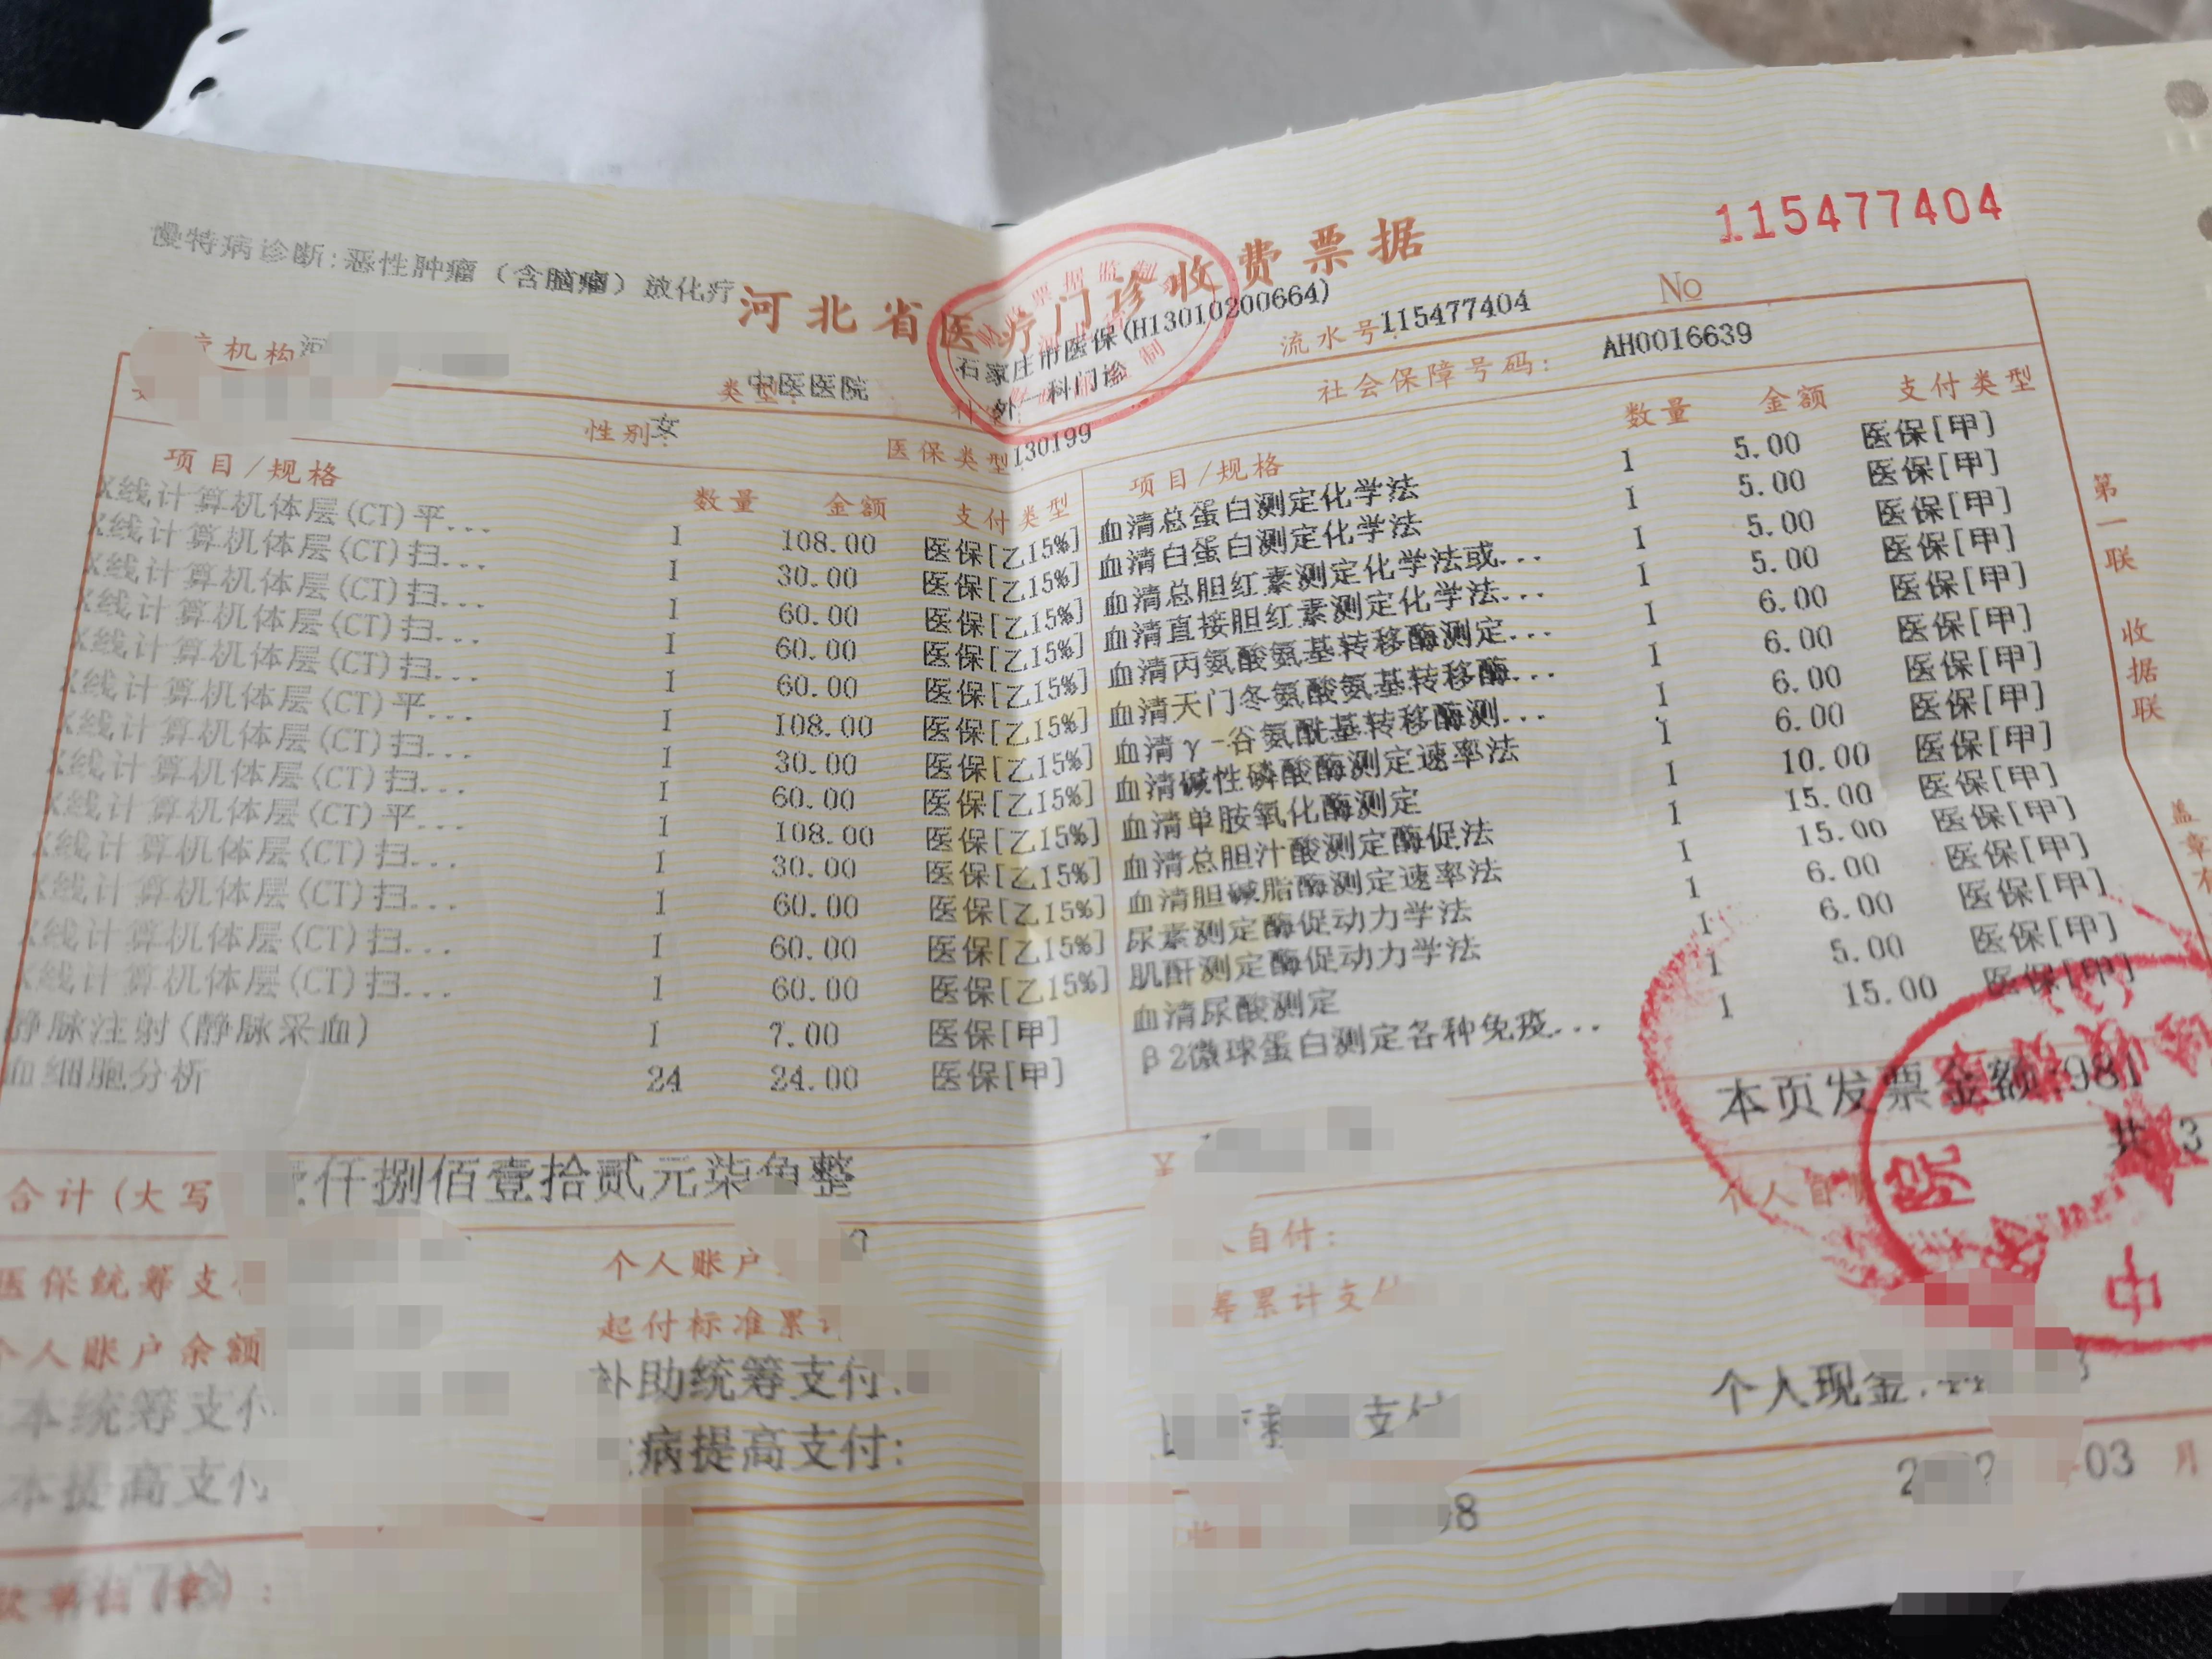 115477404
慢特病诊断:恶性肿瘤(含脑瘤)放化疗
河北省医疗门诊收费票据
No
机构
类型:
中医医院
石家庄市医保(H13010200664)
外一科门诊
流水号:115477404
社会保障号码:
AH0016639
性别:女
医保类型:130199
项目/规格 数量 金额 支付类型
X线计算机体层(CT)平... 1 108.00 医保[乙15%]
X线计算机体层(CT)扫... 1 30.00 医保[乙15%]
X线计算机体层(CT)扫... 1 60.00 医保[乙15%]
X线计算机体层(CT)扫... 1 60.00 医保[乙15%]
X线计算机体层(CT)扫... 1 60.00 医保[乙15%]
X线计算机体层(CT)平... 1 108.00 医保[乙15%]
X线计算机体层(CT)扫... 1 30.00 医保[乙15%]
X线计算机体层(CT)扫... 1 60.00 医保[乙15%]
X线计算机体层(CT)平... 1 108.00 医保[乙15%]
X线计算机体层(CT)扫... 1 30.00 医保[乙15%]
X线计算机体层(CT)扫... 1 60.00 医保[乙15%]
X线计算机体层(CT)扫... 1 60.00 医保[乙15%]
X线计算机体层(CT)扫... 1 60.00 医保[乙15%]
静脉注射(静脉采血) 1 7.00 医保[甲]
血细胞分析 24 24.00 医保[甲]
项目/规格 数量 金额 支付类型
血清总蛋白测定化学法 1 5.00 医保[甲]
血清白蛋白测定化学法 1 5.00 医保[甲]
血清总胆红素测定化学法或... 1 5.00 医保[甲]
血清直接胆红素测定化学法... 1 5.00 医保[甲]
血清丙氨酸氨基转移酶测定... 1 6.00 医保[甲]
血清天门冬氨酸氨基转移酶... 1 6.00 医保[甲]
血清γ-谷氨酰基转移酶测... 1 6.00 医保[甲]
血清碱性磷酸酶测定速率法 1 6.00 医保[甲]
血清单胺氧化酶测定 1 10.00 医保[甲]
血清总胆汁酸测定酶促法 1 15.00 医保[甲]
血清胆碱脂酶测定速率法 1 15.00 医保[甲]
尿素测定酶促动力学法 1 6.00 医保[甲]
肌酐测定酶促动力学法 1 6.00 医保[甲]
血清尿酸测定 1 5.00 医保[甲]
β2微球蛋白测定各种免疫... 1 15.00 医保[甲]
第一联 收据联
盖章有
本页发票金额:981
共 3
合计(大写
仟捌佰壹拾贰元柒角整
¥
个人自
医保统筹支
个人账户
人自付:
个人账户余额
起付标准累计
筹累计支付
本统筹支付
补助统筹支付:
支付
个人现金
本提高支付
病提高支付:
08
03 月
款单位(章):
中